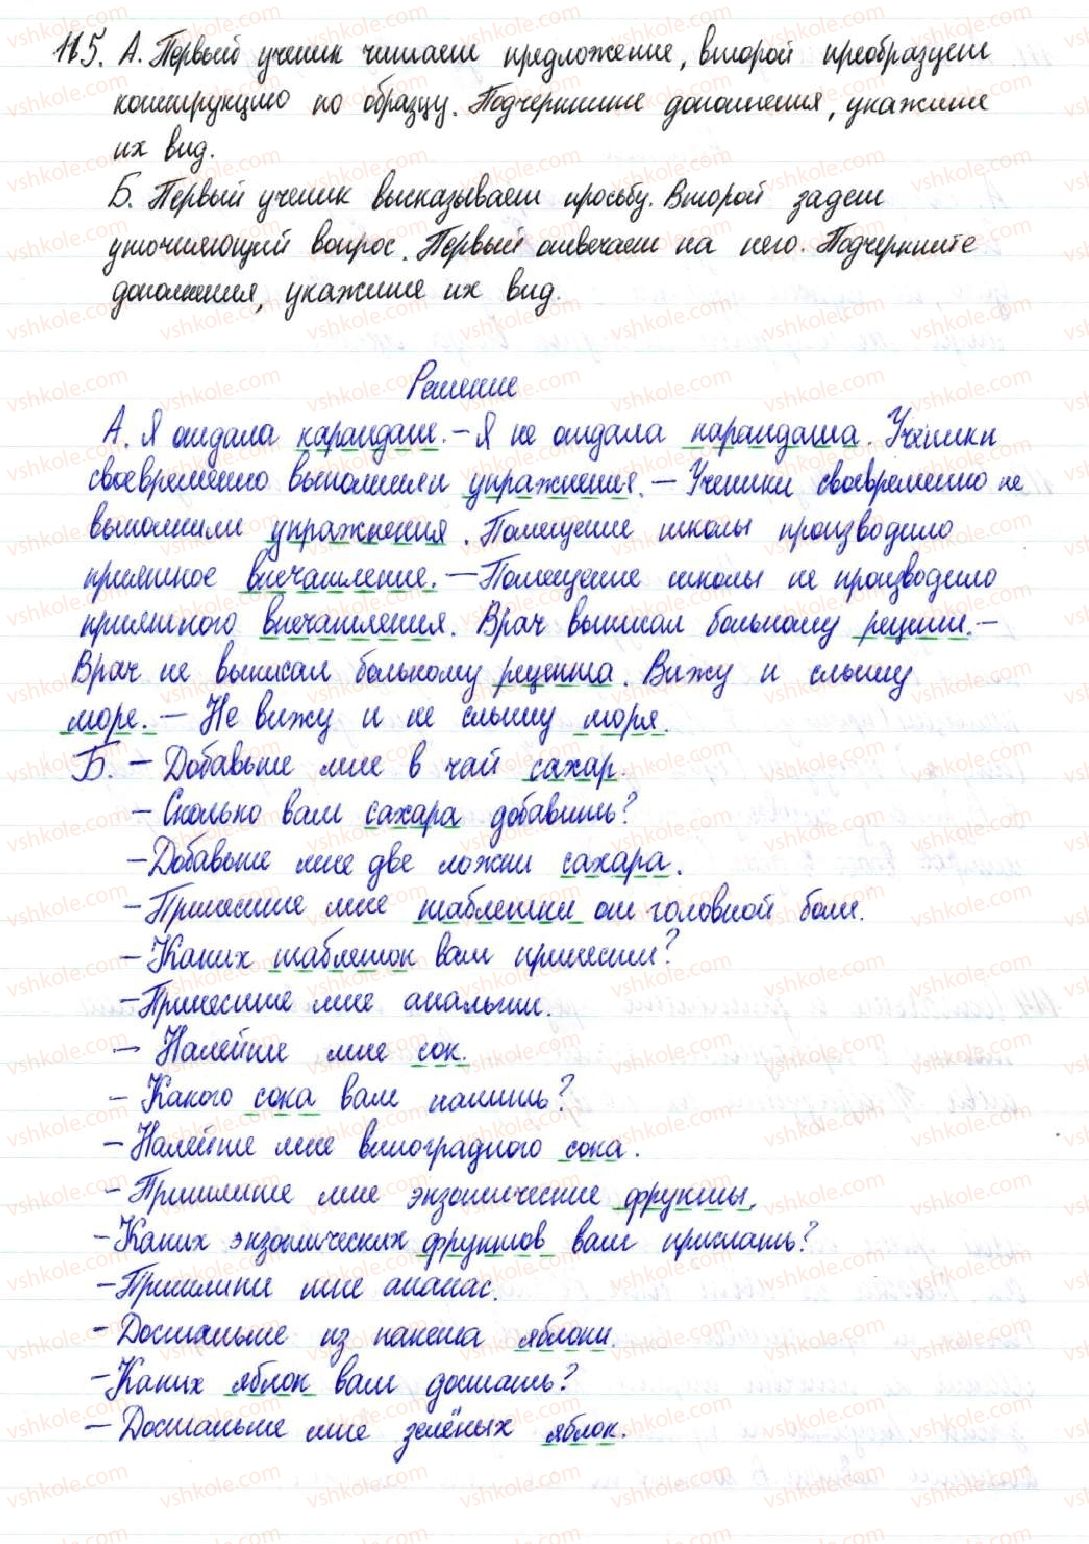 115. А. Первый ученик читает предложение, второй преобразует
конструкцию по образцу. Подчеркните дополнения, укажите
их вид.
Б. Первый ученик высказывает просьбу. Второй задет
уточняющий вопрос. Первый отвечает на него. Подчеркните
дополнения, укажите их вид.
Решение
А. Я отдала карандаш. – Я не отдала карандаша. Ученики
своевременно выполнили упражнения. – Ученики своевременно не
выполнили упражнения. Помещение школы производило
приятное впечатление. – Помещение школы не производило
приятного впечатления. Врач выписал больному рецепт. –
Врач не выписал больному рецепта. Вижу и слышу
море. – Не вижу и не слышу моря.
Б. – Добавьте мне в чай сахар.
– Сколько вам сахара добавить?
– Добавьте мне две ложки сахара.
– Принесите мне таблетки от головной боли.
– Каких таблеток вам принести?
– Принесите мне анальгин.
– Налейте мне сок.
– Какого сока вам налить?
– Налейте мне виноградного сока.
– Пришлите мне экзотические фрукты.
– Каких экзотических фруктов вам прислать?
– Пришлите мне ананас.
– Достаньте из пакета яблоки.
– Каких яблок вам достать?
– Достаньте мне зелёных яблок.